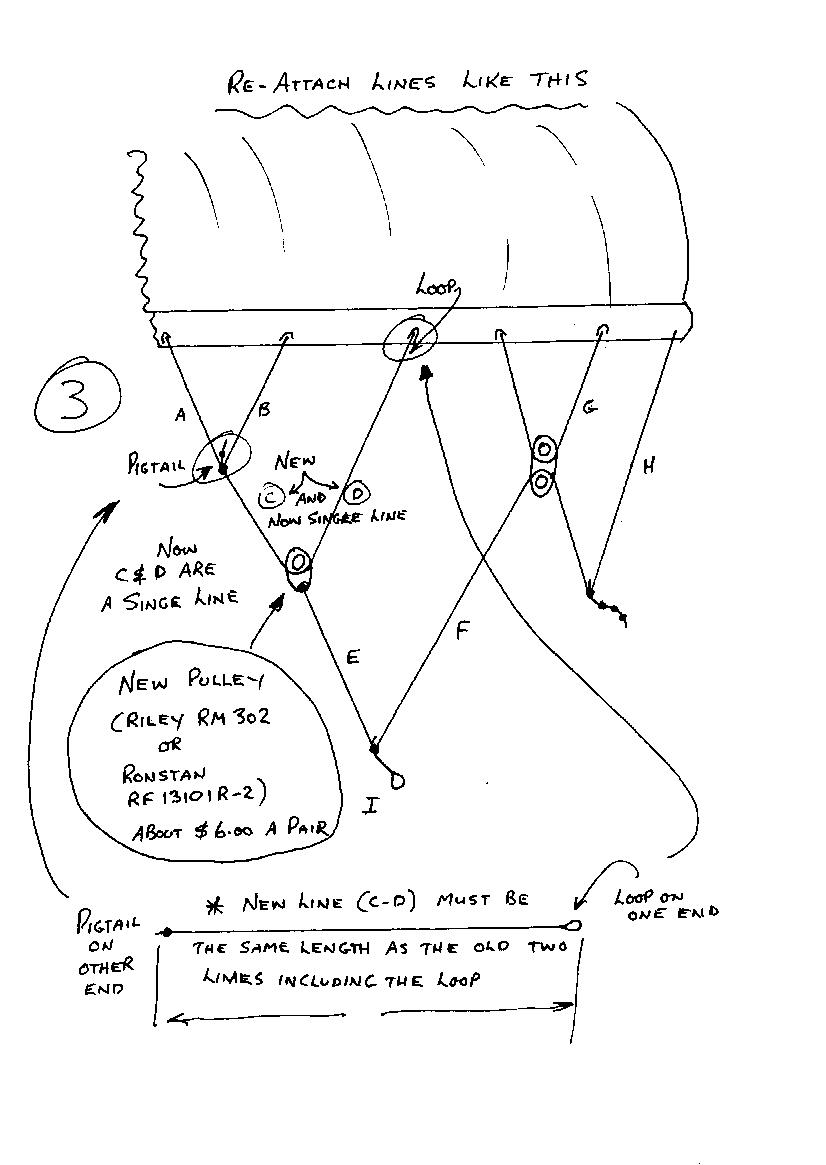 RE-ATTACH LINES LIKE THIS
LOOP
3
A
B
G
H
PIGTAIL
NEW
C AND D
NOW SINGEE LINE
NOW
C & D ARE
A SINGE LINE
F
E
NEW PULLEY
(RILEY RM 302
OR
RONSTAN
RF 13101R-2)
ABOUT $6.00 A PAIR
I
* NEW LINE (C-D) MUST BE
LOOP ON
ONE END
PIGTAIL
ON
OTHER
END
THE SAME LENGTH AS THE OLD TWO
LIMES INCLUDING THE LOOP